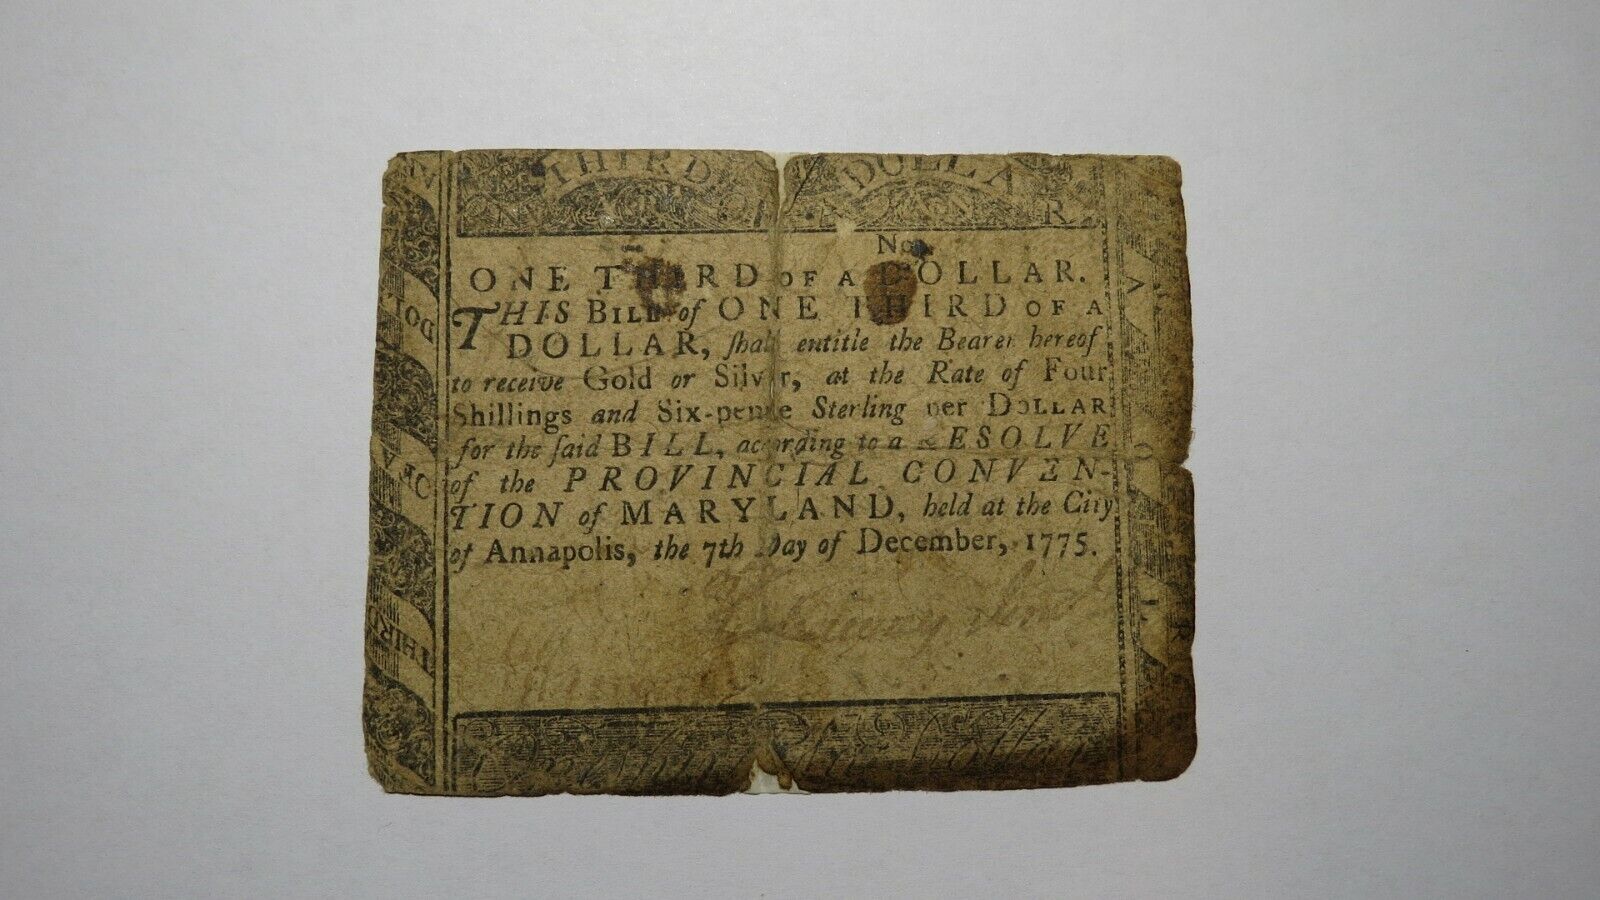 THIRD DOLLA
No.
ONE THIRD OF A DOLLAR.
THIS BILL of ONE THIRD OF A
DOLLAR, ſhall entitle the Bearer hereof
to receive Gold or Silver, at the Rate of Four
Shillings and Six-pence Sterling per DOLLAR
for the ſaid BILL, according to a RESOLVE
of the PROVINCIAL CONVEN-
TION of MARYLAND, held at the City
of Annapolis, the 7th Day of December, 1775.
THIRD
OF A
DOL